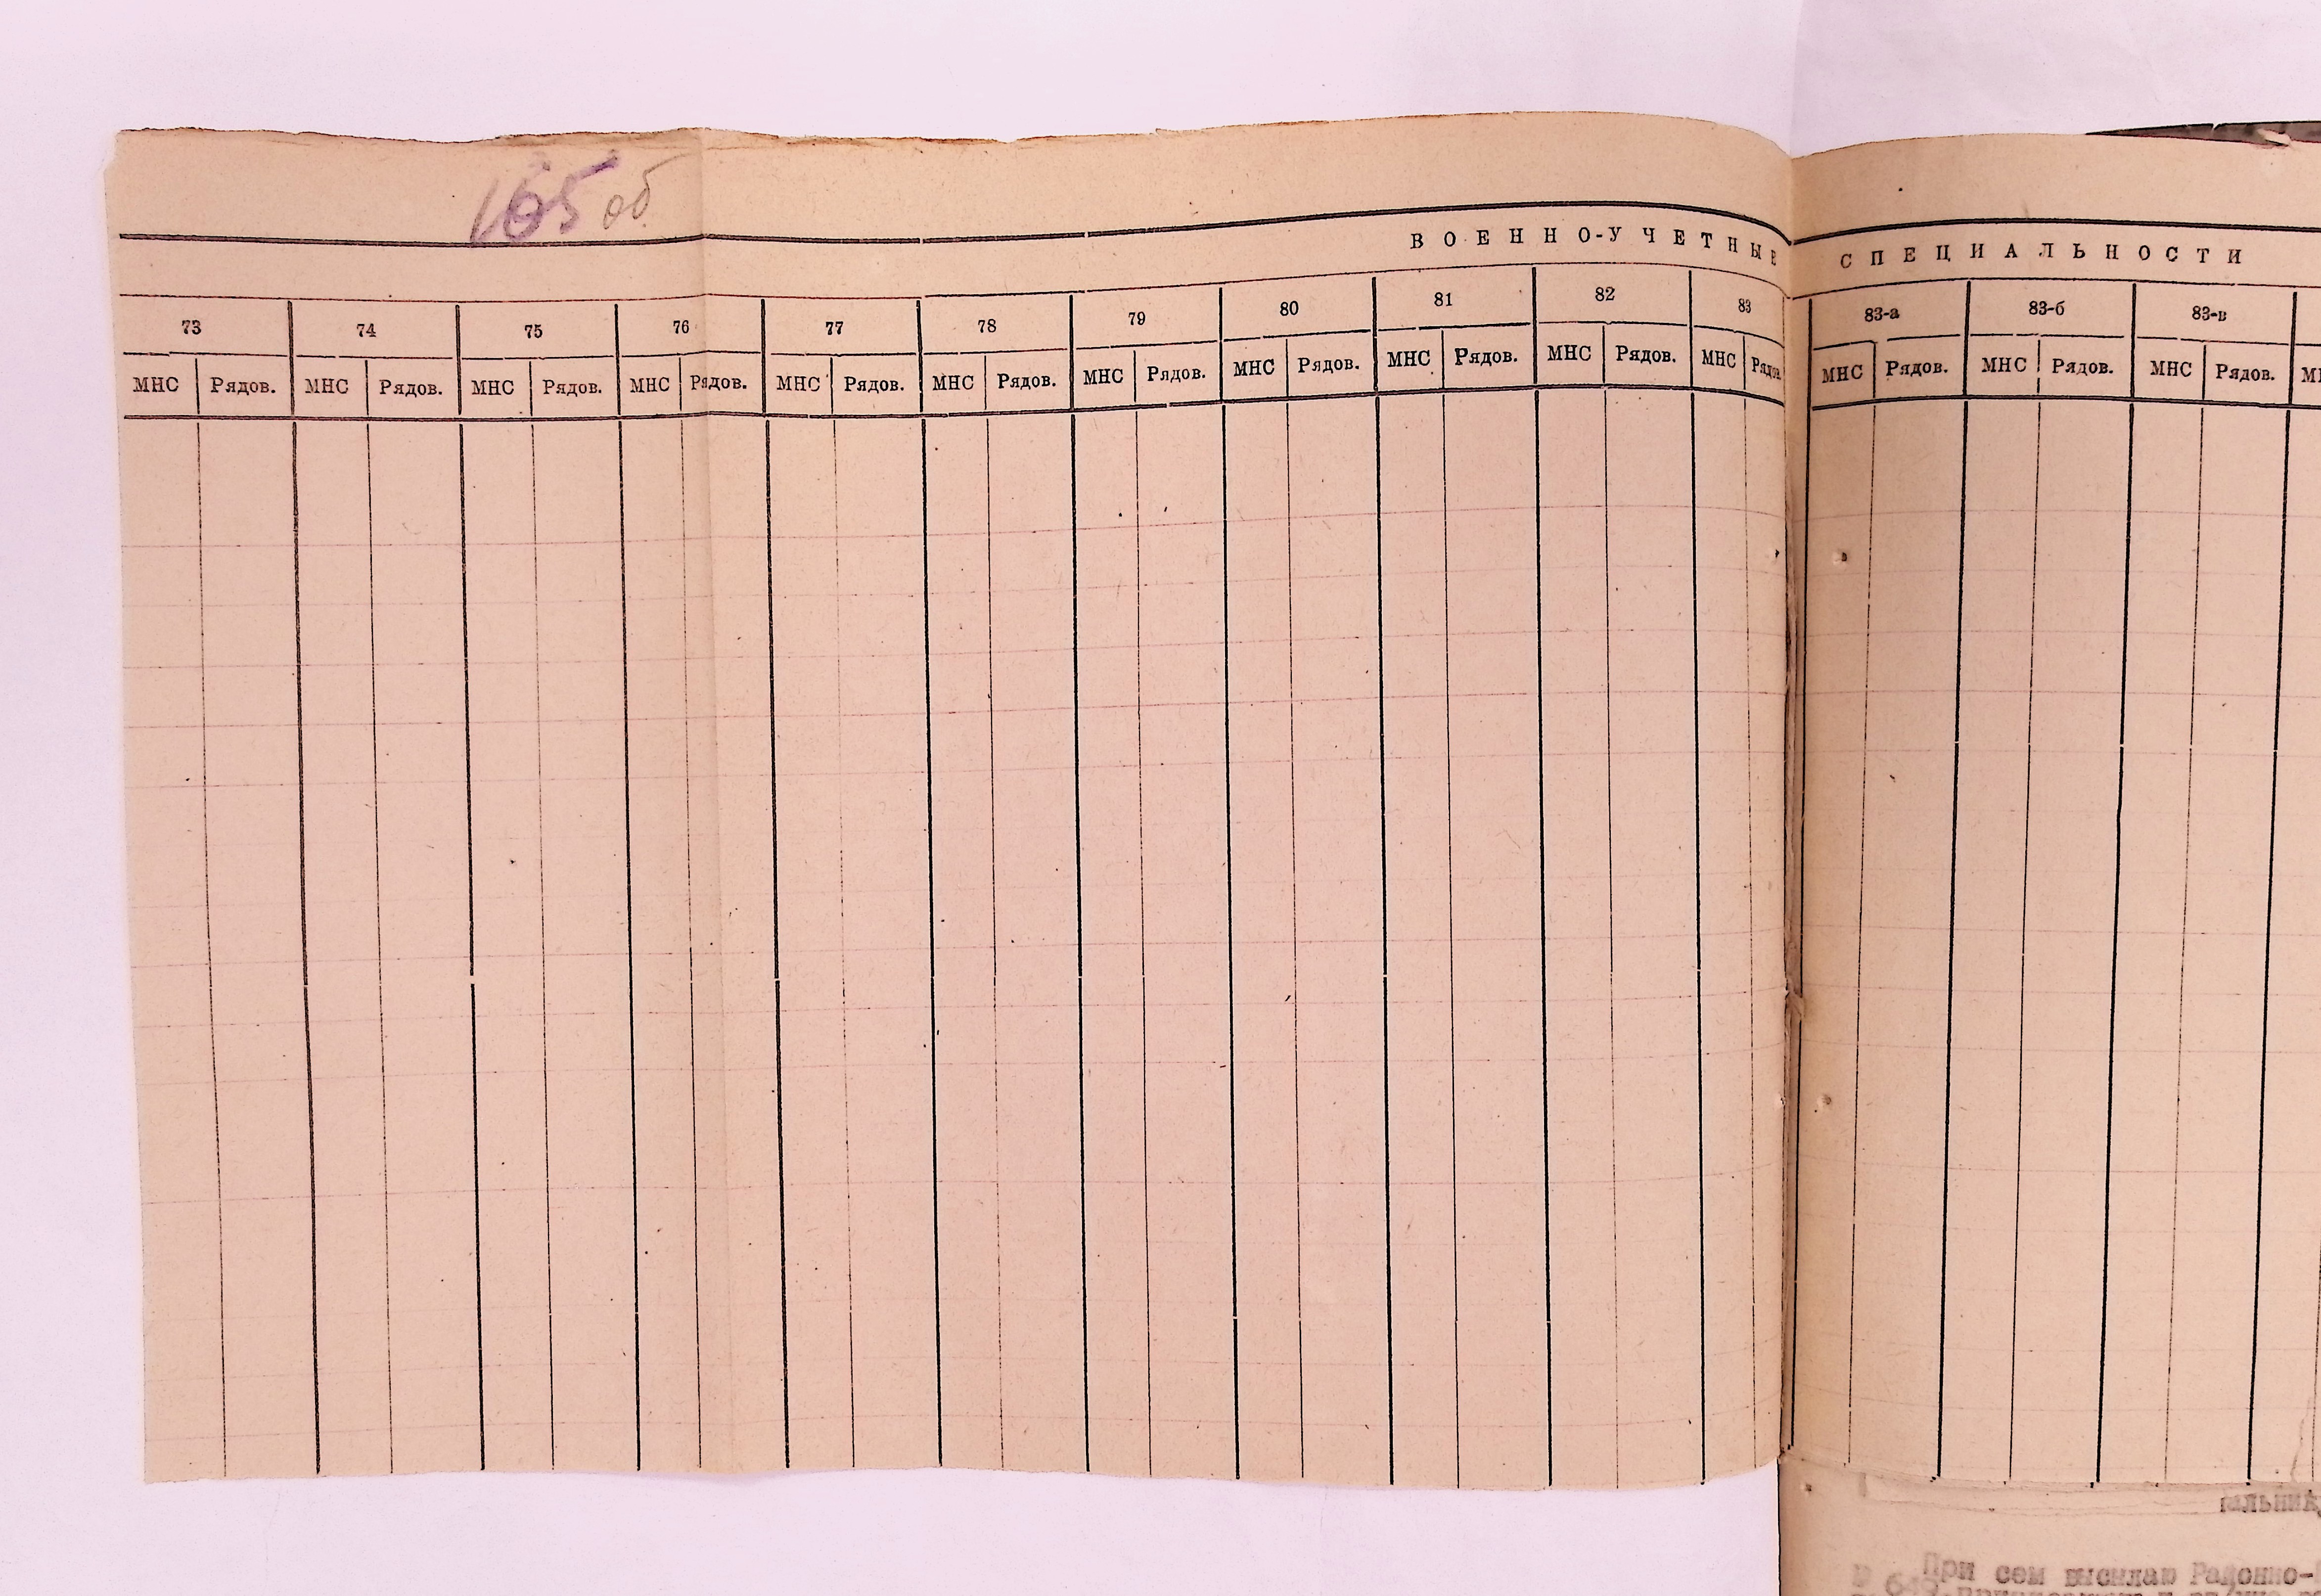 165 об.
ВОЕННО-УЧЕТНЫЕ СПЕЦИАЛЬНОСТИ
73 74 75 76 77 78 79 80 81 82 83 83-а 83-б 83-в
МНС Рядов. МНС Рядов. МНС Рядов. МНС Рядов. МНС Рядов. МНС Рядов. МНС Рядов. МНС Рядов. МНС Рядов. МНС Рядов. МНС Рядов. МНС Рядов. МНС Рядов. МНС Рядов.
При сем высылаю Районно-